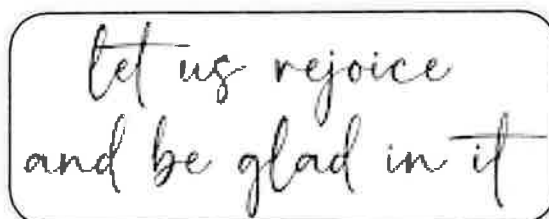 let us rejoice
and be glad in it